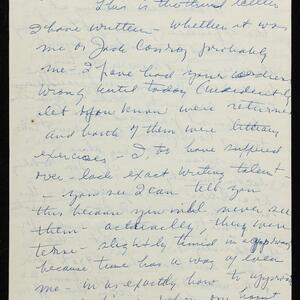 This is the third letter
I have written - whether it was
me or Jack Conroy probably
me - I have had your address
wrong until today (incidently
let you know were returned
and both of them were literary
exercises - I, to have suffered
over - lack exact writing talent -
- you see I can tell you
this because you will never see
them - actually, they were
terse - slightly timid in approach
because time has a way of even
me - in as exactly how to approach